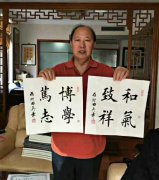 和氣
致祥
博學
篤志